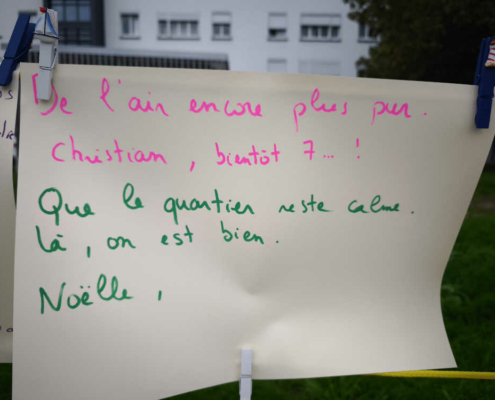 De l'air encore plus pur.
Christian, bientôt 7... !
Que le quartier reste calme.
Là, on est bien.
Noëlle,